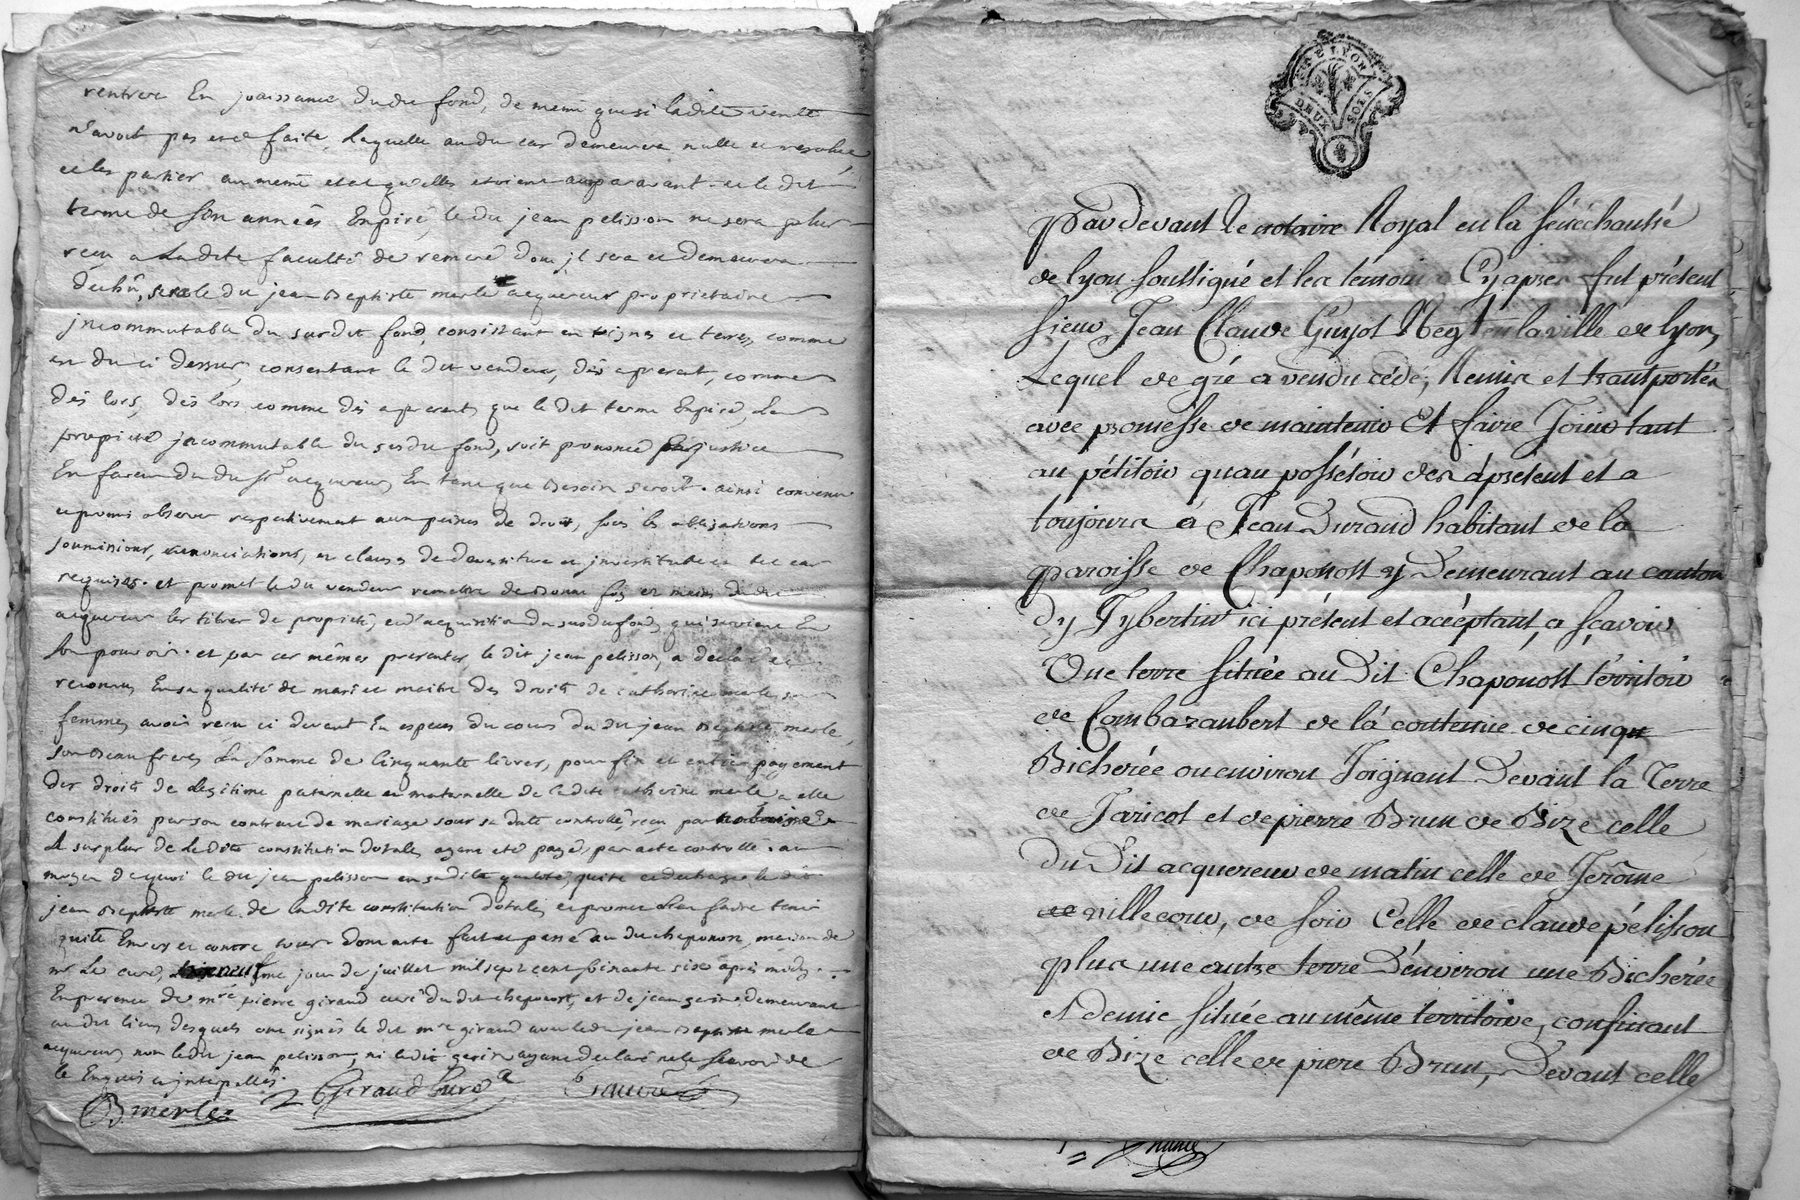 rentrer En joaissance dudit fond, de meme que si ladite vente
n'avoit pas eté faite, Laquelle audit cas demeurera nulle et resolue
et les parties au meme etat qu'elles etoient auparavant et le dit
terme de son années Expiré, le dit jean pelisson ne sera plus
reçu a Ladite faculté de remeré dont il sera et demeurera
dechu, sera le dit jean Baptiste merle acquereur proprietaire
jncommutable du susdit fond, consistant en vignes et terres, comme
est dit ci dessus, consentant le dit vendeur, dès apresent, comme
dès lors, dès lors comme dès apresent, que le dit terme Expiré, La
propieté jncommutable du susdit fond, soit prononcé par justice
En faveur du dit Sr acquereur, En tant que Besoin seroit. ainsi convenu
et promis observer respectivement aux peines de droit, sous les obligations
soumissions, renonciations, et clauses de devestiture et jnvestiture en tel cas
requises. et promet le dit vendeur remettre de Bonne foy es mains dudit
acquereur les titres de propieté, et d'acquisition du susdit fond, qui seroient En
son pouvoir. et par ces mêmes presentes, le dit jean pelisson, a declaré et
reconnu En sa qualité de mari et maitre des droits de catherine merle, sa
femme, avoir reçu ci devant En especes du cours du dit jean Baptiste merle,
son Beau frere, La somme de Cinquante livres, pour fin et entier payement
Des droits de Legitime paternelle et maternelle de ladite catherine merle a elle
constitués par son contract de mariage sous sa datte controllé, reçu par
Le surplus de ladite constitution dotale, ayant eté payé, par acte controllé. au
moyen de quoi le dit jean pelisson en sadite qualité, quitte et decharge le dit
jean Baptiste merle de ladite constitution dotale, et promet L'en faire tenir
quitte Envers et contre tous. dont acte fait et passé au dit chaponost, maison de
mr Le curé, jour de juillet mil sept cent soixante six après midy.
En presence de mre pierre giraud curé du dit chaponost, et de jean gerin demeurant
au dit lieu, desquels ont signés le dit mre giraud avec le dit jean Baptiste merle
acquereur, non le dit jean pelisson, ni le dit gerin ayant declaré ne le scavoir de
le Enquis et jnterpellés.
B merle Giraud Curé
GE LYON
DEUX SOLS
Pardevant Le notaire Royal en la sénéchaussé
de lyon soussigné et les témoins Cyaprès fut présent
sieur Jean Claude Guyot Negt en la ville de lyon,
Lequel de gré a vendu cédé, Remis et transportés
avec promesse de maintenir Et faire Joiür tant
au pétitoir quau possétoir des àpresent et a
toujours à Jean Durand habitant de la
paroisse de Chaponost y Demeurant au canton
dy Tybertin ici présent et accéptant, a sçavoir
Une terre située au Dit Chaponost térritoir
de Combaraubert de la contenue de cinqt
Bicherée ou environ Joignant Devant la Terre
de Jaricot et de pierre Brun de Bize celle
du Dit acquereur de matin celle de Jerôme
villecour, de soir Celle de claude pélisson
plus une autre terre D'environ une Bicherée
et demie située au même territoire, confinant
de Bize celle de piere Brun, Devant celle